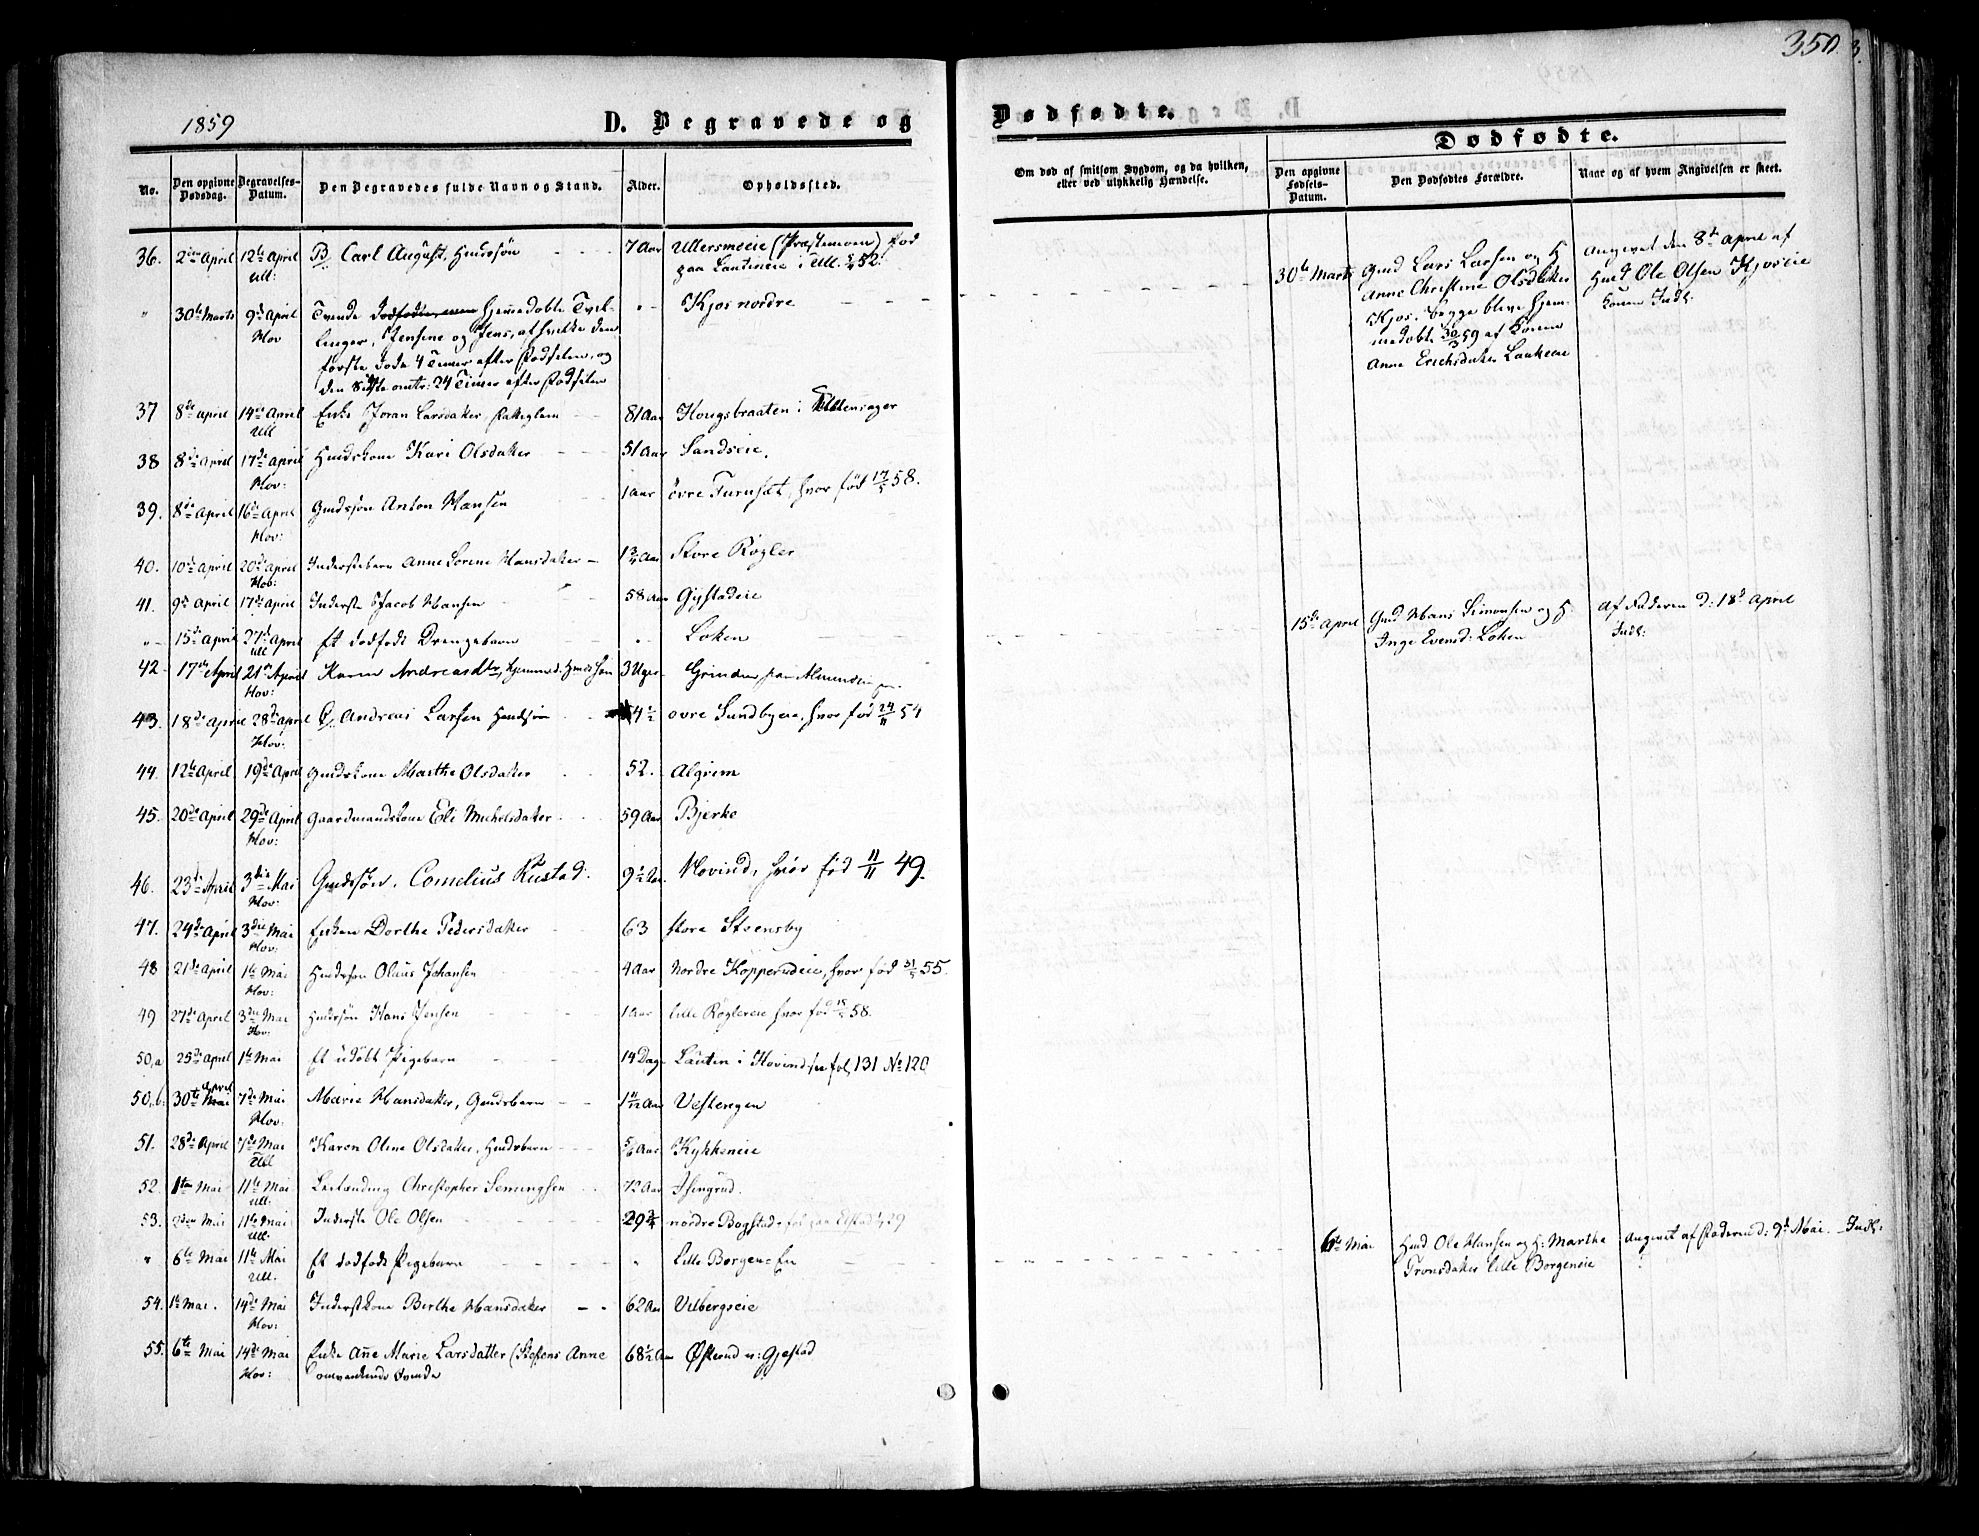 350.
1859
D. Begravede og
Dødfødte.
Dødfødte.
No.
Den opgivne Dødsdag.
Begravelses-Datum.
Den Begravedes fulde Navn og Stand.
Alder.
Opholdssted.
Om død af smitsom Sygdom, og da hvilken,
eller ved ulykkelig Hændelse.
Den opgivne Fødsels-Datum.
Den Dødfødtes Forældre.
Naar og af hvem Angivelsen er skeet.
36. 2den April 12te April Carl August, Huusssøn 7 Aar Ullersmoeie (Præstemoen) fød
Ull: paa Lautineie i Ull. 52.
" 30te Marts 9de April Tvende dødfødte, men hjemmedøbte Tvil- " Kjos nordre
Hov linger, Jensine og Jens, af hvilke den
første døde 4 Timer efter Fødselen, og
den sidste omtr: 24 Timer efter Fødselen
30te Marts Gmd Lars Larsen og H
Anne Christine Olsdatter
Kjos, begge bleve hjem-
medøbte 30/3 59 af Konen
Anne Erichsdatter
Angivet den 8de April af
Husm Ole Olsen Kjoseie
Indl:
37 8de April 14de April Enke Joran Larsdatter, 81 Aar Hougsbraaten i
Ull
38 8de April 17de April Huuskone Kari Olsdatter 51 Aar Sandseie.
Hov:
39. 8de April 16de April Gmdssøn Anton Hansen 1 Aar øvre Furusæt, hvor fød 17/5 58.
Hov:
40. 10de April 20de April Inderstebarn Anne Lorene Hansdatter 1 3/4 Aar Store Røgler
Hov:
41. 9de April 17de April Inderste Jacob Hansen 58 Aar Gjestadeie
" 15de April 27de April Et dødfødt Drengebarn " Løken
Ull
15de April Gmd Hans Simonsen og H.
Inge Evensd: Løken
Af Faderen d: 18de April
Indl:
42 17de April 21de April Karen Andreasdtr, hjemmed. 3 Uger Grinden, paa Almendingen
Hov:
43. 18de April 28de April Andreas Larsen Huusssøn 4 1/2 øvre Sundbyeie, hvor fød 24/11 54
Hov:
44. 12te April 19de April Gmdskone Marthe Olsdatter 52. Algrim
45. 20de April 29de April Gaardmandskone Eli Michelsdatter 59 Aar Bjerke
Hov:
46. 23de April 3die Mai Gmdssøn. Cornelius Rustad. 9 1/2 Aar Hovind, hvor fød 11/11 49.
Hov:
47. 24de April 3die Mai Enken Dorthe Pedersdatter 63 store Steensby
Hov:
48 21de April 1te Mai Huusssøn Olaus Johansen 4 Aar Nordre Kopperudeie, hvor fød 31/5 55.
Hov:
49 27de April 3die Mai Huusssøn Hans Jensen 1 Aar lille Røglereie hvor fød 58.
Hov:
50,a 25de April 1te Mai Et udøbt Pigebarn 14 Dage Lautin i Hovind, see fol. 131 No 120
50,b. 30te April Mai 7de Mai Marie Hansdatter, Gmdsbarn 1 11/12 Aar Vestengen
Hov:
51. 28de April 7de Mai Karen Oline Olsdatter, Huusbarn 5/6 Aar Kykkeneie
Ull
52. 1te Mai 11te Mai Christopher Semingsen 72 Aar Isingrud.
Ull.
53. 2den Mai 11te Mai Inderste Ole Olsen 29 3/4 nordre Bogstad
Ull.
" 6te Mai 11te Mai Et dødfødt Pigebarn " Lille Borgen-Eie
Ull.
6te Mai Husm Ole Hansen og H: Marthe
Tronsdatter lille Borgeneie
Angivet af Faderen d: 9de Mai. Indl:
54. 1te Mai. 14de Mai Inderstkone Berthe Hansdatter 62 Aar Vilbergseie
Hov:
55. 6te Mai 14de Mai Enke Anne Marie Larsdatter (Stefens Anne 68 1/2 Aar Østerud v: Gjestad
Hov: omvankende